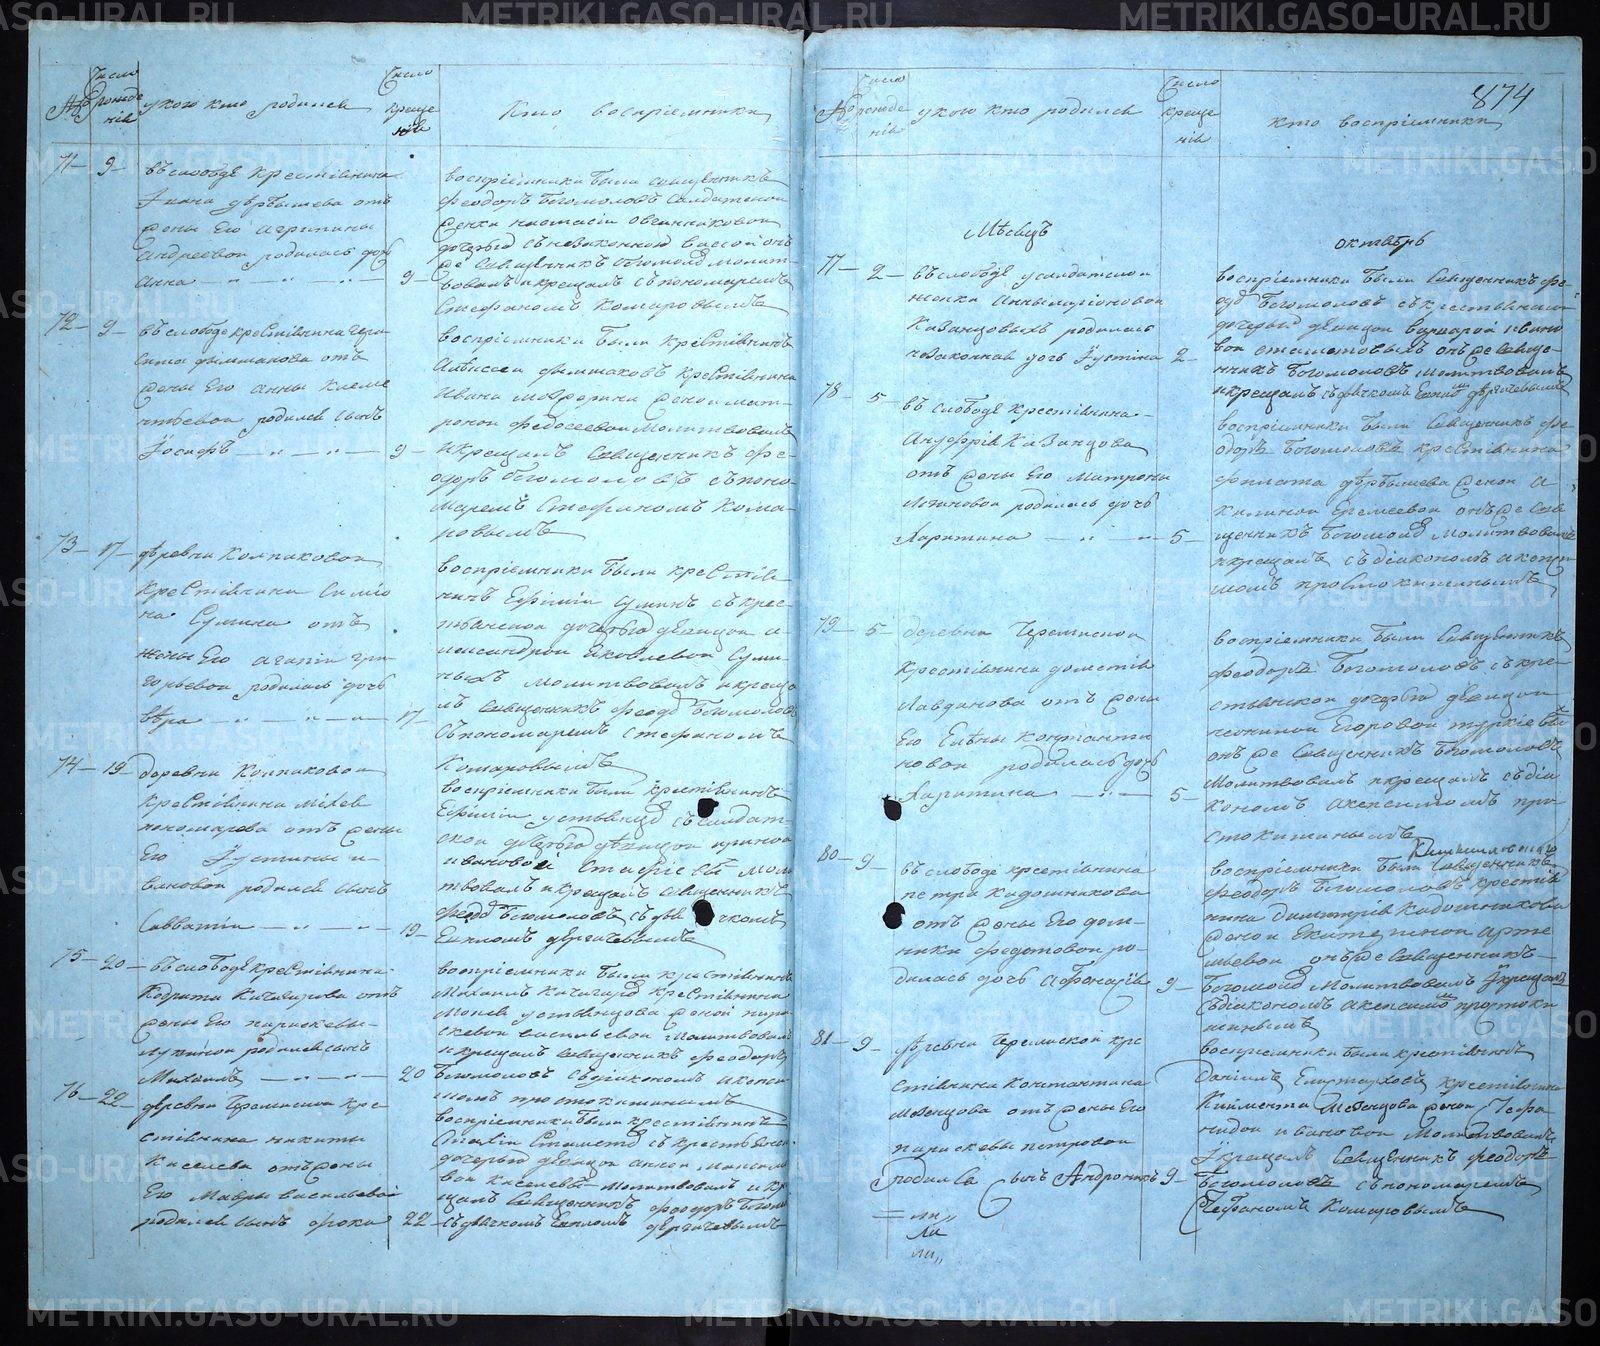 874
№
Число рожденія
у кого кто родился
Число крещенія
Кто воспріемники
71 — 9 —
въ слободе крестьянина
Ивана Дѣрбышева отъ
жены Его Агрипины
Андреевой родилась дочь
Анна — 9 —
воспріемники были священникъ
Феодоръ Богомоловъ Солдатской
женки Настасіи Овсянниковой
дочерью съ незаконною онъ
же священникъ Богомоловъ молит-
вовалъ и крещалъ съ пономаремъ
Стефаномъ Комаровымъ
72 — 9 —
въ слободе крестьянина Гера-
сима отъ
жены Его Анны Клеме
нтьевой родился сынъ
Іосифъ — 9 —
воспріемники были крестьянинъ
Алексей крестьянина
Ивана женой Мат-
роной Федосеевой Молитвовалъ
и крещалъ Священникъ Фе-
одоръ Богомоловъ съ поно
маремъ Стефаномъ Кома-
ровымъ
73 — 17 —
деревни Колпаковой
крестьянина Симіо
на Сумина отъ
жены Его Агапіи Гри
горьевой родилась дочь
Вѣра — 17 —
воспріемники были крестья
нинъ Ефимій Суминъ съ крес-
тьянской дочерью девицой А-
лександрой Яковлевой Суми-
ныхъ Молитвовалъ и креща
лъ Священникъ Феодоръ Богомоловъ
съ пономаремъ Стефаномъ
Комаровымъ
74 — 19 —
деревни Колпаковой
крестьянина Михея
Пономарева отъ жены
Его Іустины И-
вановой родился сынъ
Савватій — 19 —
воспріемники были крестьянинъ
Ефимій Устьянцовъ съ солдат-
ской дочерью девицой Ириной
Ивановой моли
твовалъ и крещалъ Священникъ
Феодоръ Богомоловъ съ дья чкомъ
Евпломъ Дергачевымъ
75 — 20 —
въ слободе крестьянина
Кодрата Качигарова отъ
жены Его Парискевы
Лукиной родился сынъ
Михаилъ — 20
воспріемники были крестьянинъ
Михаилъ Качигаровъ крестьянина
Моисея Устьянцова женой Пари
скевой Васильевой Молитвовалъ
и крещалъ Священникъ Феодоръ
Богомоловъ съ діякономъ Акепси
момъ Простокишинымъ
76 — 22 —
деревни Черемиской кре
стьянина Никиты
Киселева отъ жены
Его Мавры Васильевой
родился сынъ Фока 22 —
воспріемники были крестьянинъ
съ крестьянской
дочерью девицой Анной Максимо
вой Киселевой Молитвовалъ и кре
щалъ Священникъ Феодоръ Богомо
съ дьячкомъ Евпломъ Дергачевымъ
№
Число рожденія
у кого кто родился
Число крещенія
кто воспріемники
Мѣсяцъ
октябрь
77 — 2 —
въ слободе у солдатской
женки Анны Ларіоновой
Казанцовыхъ родилась
незаконная дочь Іустина 2 —
воспріемники были Священникъ Фе-
одоръ Богомоловъ съ крестьянской
дочерью девицой Варварой Ивано
вой Стаметовыхъ онъ же Священ-
никъ Богомоловъ Молитвовалъ
и крещалъ съ дьячкомъ Дергачевымъ
78 — 5 —
въ слободе крестьянина
Ануфрія Казанцова
отъ жены Его Матроны
Логиновой родилась дочь
Харитина — 5 —
воспріемники были Священникъ Фе-
одоръ Богомоловъ крестьянина
Филата Дѣрбышева женой А-
килиной Еремеевой онъ же Свя
щенникъ Богомоловъ Молитвовалъ
и крещалъ съ діакономъ Акепси
момъ Простокишинымъ
79 — 5 —
деревни Черемиской
Крестьянина Дометія
Лавданова отъ жены
Его Елены Константи
новой родилась дочь
Харитина — 5 —
воспріемники были Священникъ
Феодоръ Богомоловъ съ кре-
стьянской дочерью девицой
Егоровой
онъ же Священникъ Богомоловъ
Молитвовалъ и крещалъ съ діа
кономъ Акепсимомъ Про-
стокишинымъ
80 — 9 —
въ слободе крестьянина
Петра Кадошникова
отъ жены Его Дом-
ники Федотовой ро-
дилась дочь Афонасія 9 —
воспріемники были Священникъ
Феодоръ Богомоловъ крестья
нина Димитрія Кадошникова
женой Екатериной Арте
мьевой онъ же Священникъ
Богомоловъ Молитвовалъ И крещалъ
съ діакономъ Акепсимомъ Простоки
шинымъ
81 — 9 —
деревни Черемиской кре
стьянина Константина
Мезенцова отъ жены Его
Парискевы Петровой
родился сынъ Андроникъ 9 —
воспріемники были крестьянинъ
Даніилъ крестьянина
Климента Мезенцова женой
Ивановой Молитвовалъ
И крещалъ Священникъ Феодоръ
Богомоловъ съ пономаремъ
Стефаномъ Комаровымъ
METRIKI.GASO-URAL.RU